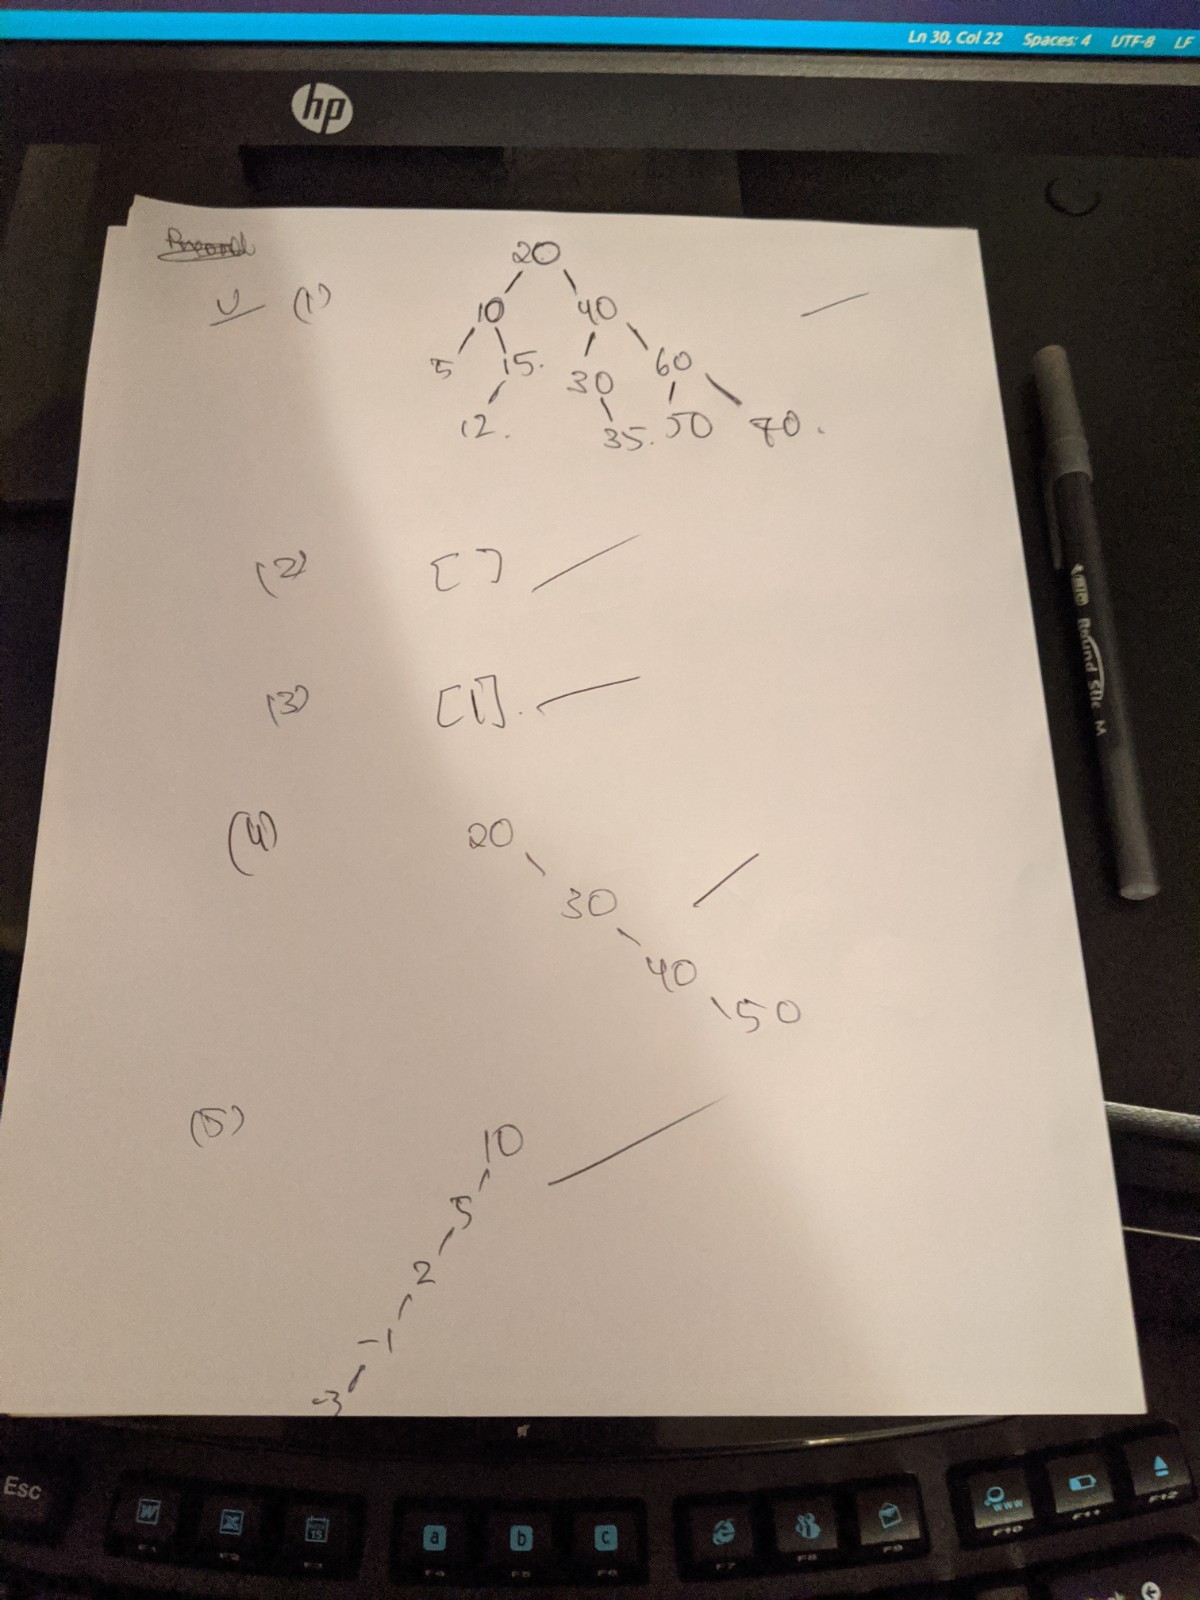 Ln 30, Col 22 Spaces: 4 UTF-8 LF
hp
20
(1) 10 40
5 15. 30 60
12. 35. 50 70.
(2) []
(3) [1].
(4) 20
30
40
50
(5) 10
5
2
-1
-3
BIC Round Stic M
Esc
W X 15 a b c www
F1 F2 F3 F4 F5 F6 F7 F8 F9 F10 F11 F12